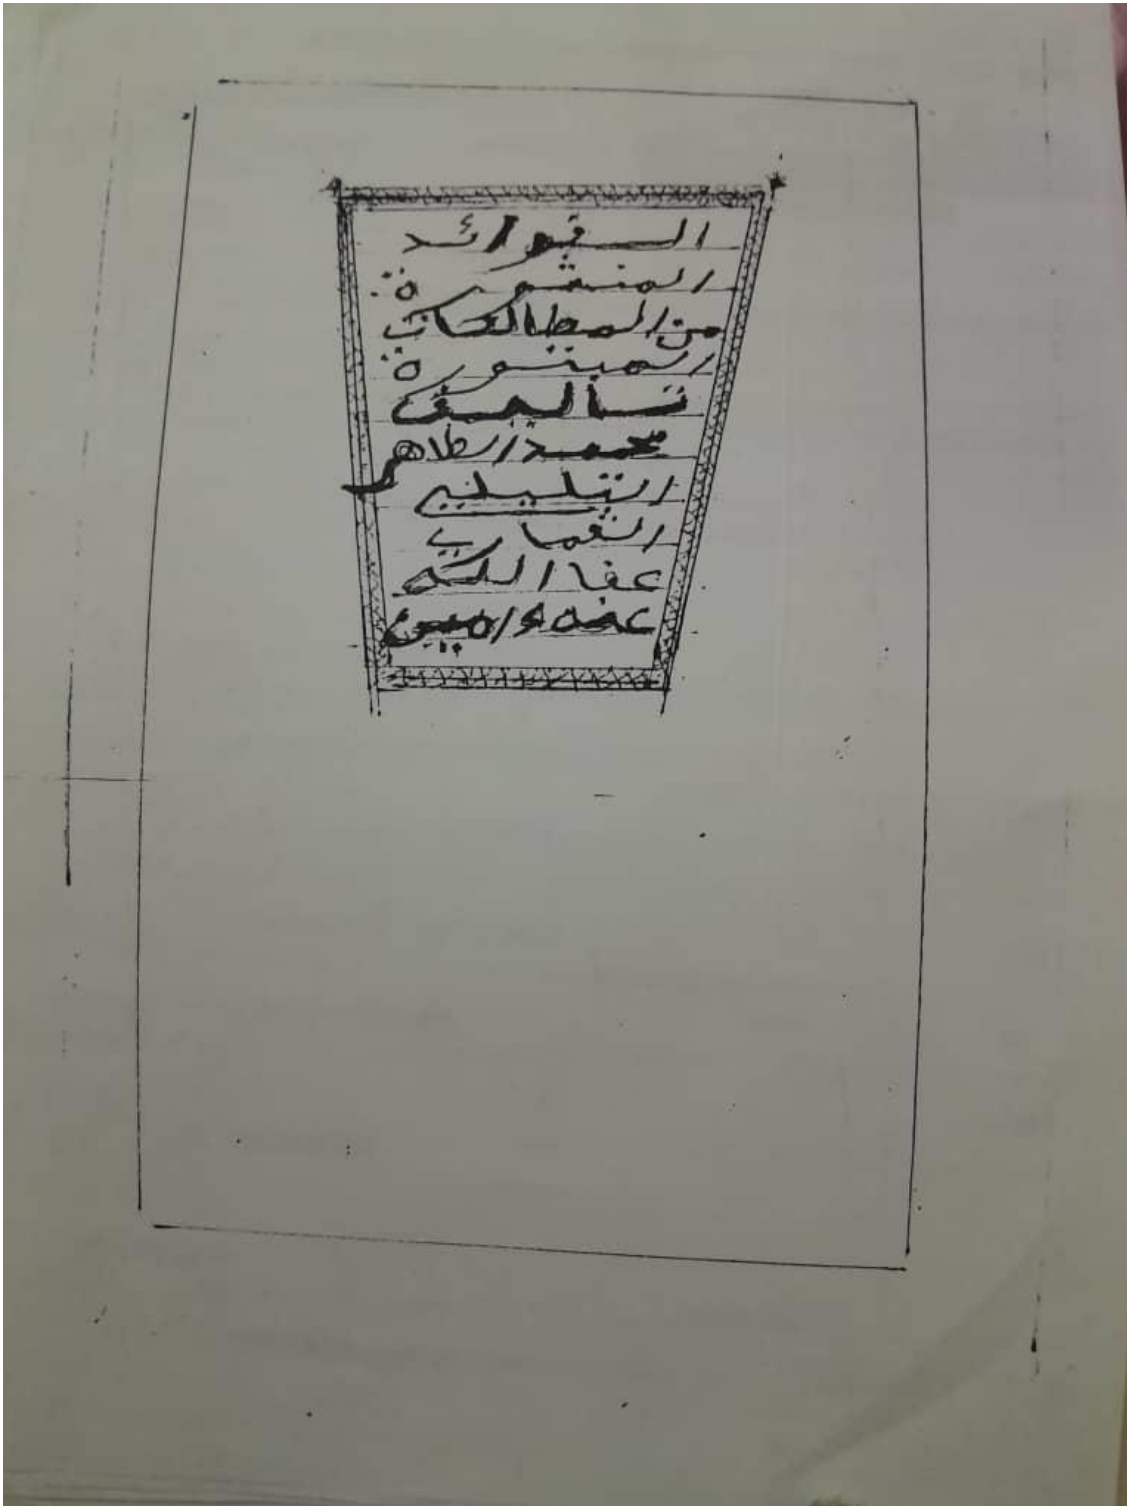 الفوائد
المنشورة
من المطالعات
المبثورة
تأليف
محمد الطاهر
التليلي
القماري
عفا الله
عنه ءامين